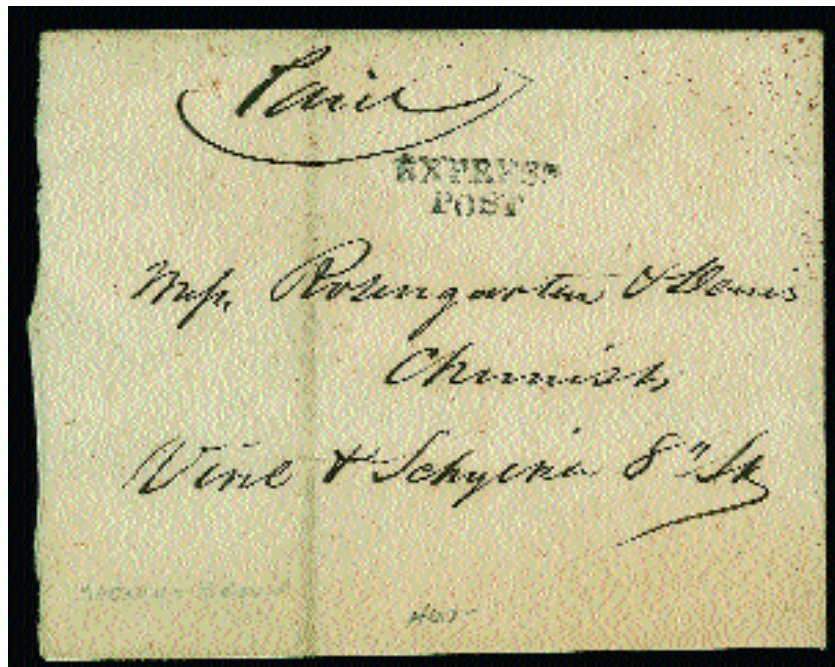 Paid
EXPRESS
POST
Mess. Rosengarten & Denis
Chemists
Vine & Schylkia 8" St